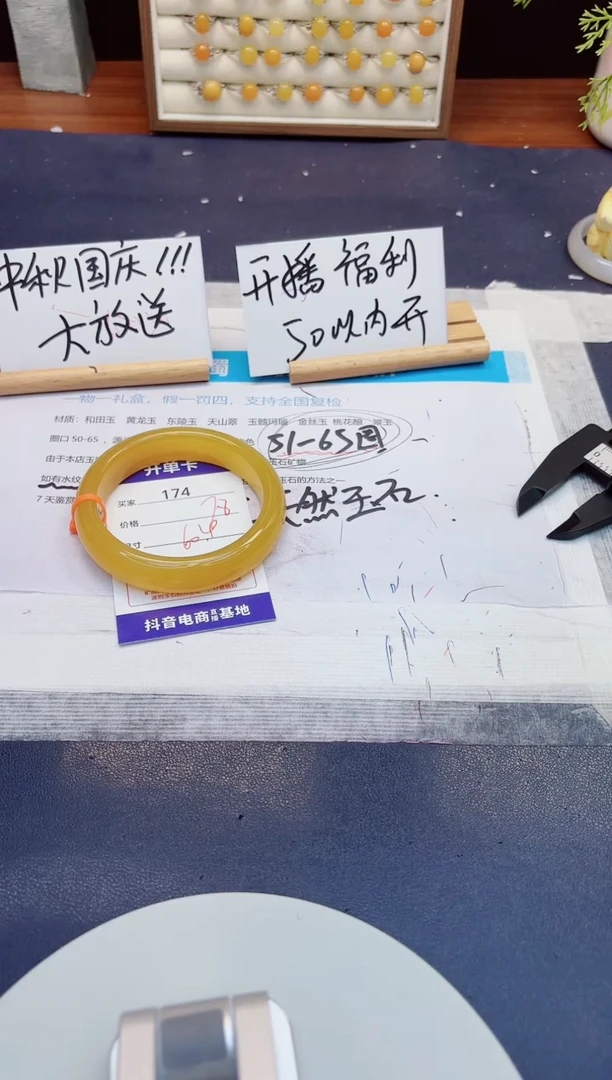 中秋国庆!!!
大放送
开播福利
50以内开
一物一礼盒，假一罚四，支持全国复检
材质：和田玉 黄龙玉 东陵玉 天山翠 玉髓玛瑙 金丝玉 桃花
圈口50-65，
色
51-65圈
由于本店玉
玉石矿物
如有水纹
玉石的方法之一
7天鉴赏
天然玉石.
开单卡
买家 174
价格 78
尺寸 60.4
抖音电商直播基地